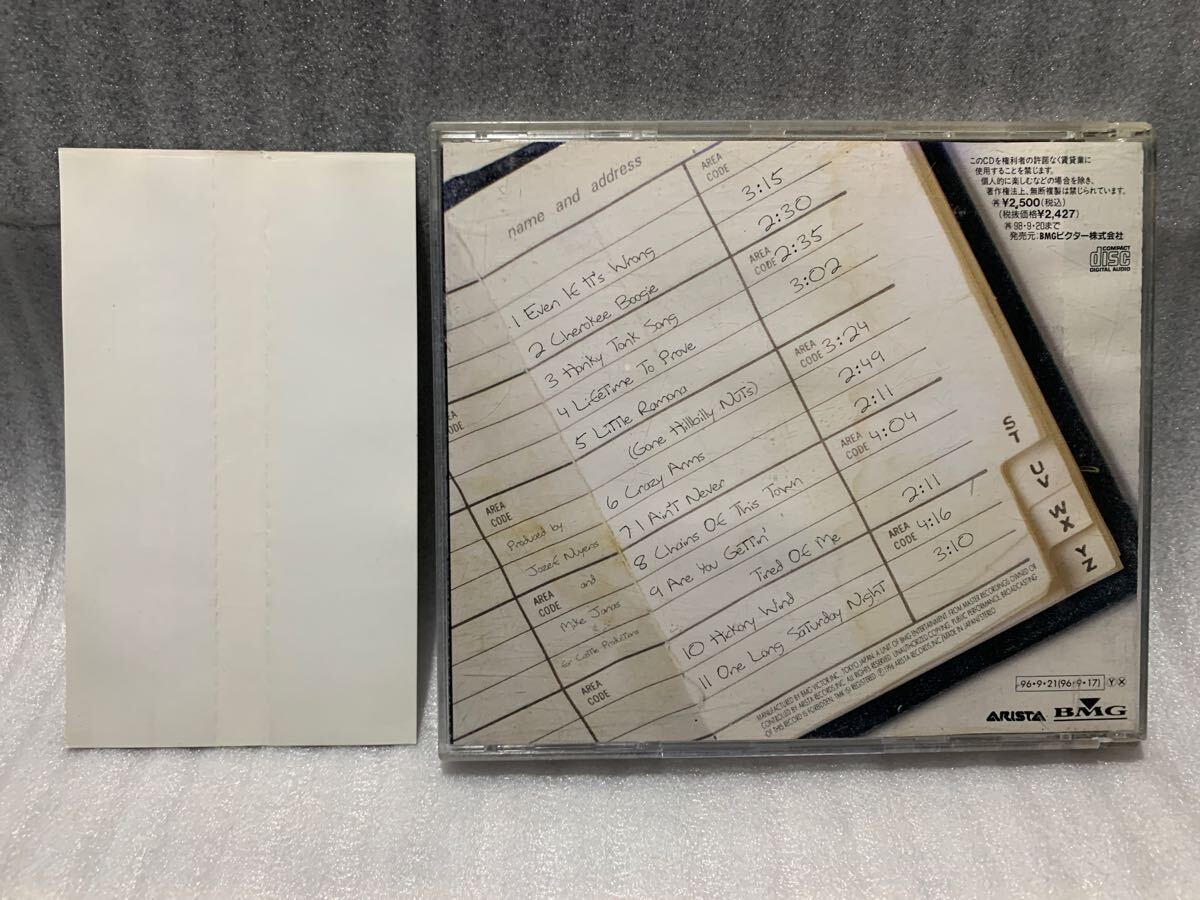 name and address
AREA
CODE
1 Even If It's Wrong 3:15
2 Cherokee Boogie 2:30
3 Honky Tonk Song 2:35
AREA
CODE
4 LifeTime To Prove 3:02
5 Little Ramona
(Gone Hillbilly Nuts) 3:24
AREA
CODE
6 Crazy Arms 2:49
7 I Ain't Never 2:11
8 Chains Of This Town 4:04
AREA
CODE
9 Are You Gettin'
Tired Of Me 2:11
10 Hickory Wind 4:16
AREA
CODE
11 One Long Saturday Night 3:10
AREA
CODE
Produced by
Jozef Nuyens
AREA
CODE
and
Mike Janas
for Castle Productions
AREA
CODE
ST
UV
WX
YZ
このCDを権利者の許諾なく賃貸業に
使用することを禁じます。
個人的に楽しむなどの場合を除き、
著作権法上、無断複製は禁じられています。
再¥2,500(税込)
(税抜価格¥2,427)
再98・9・20まで
発売元:BMGビクター株式会社
COMPACT
disc
DIGITAL AUDIO
MANUFACTURED BY BMG VICTOR INC., TOKYO, JAPAN. A UNIT OF BMG ENTERTAINMENT FROM MASTER RECORDINGS OWNED OR
CONTROLED BY ARISTA RECORDS, INC. ALL RIGHTS RESERVED. UNAUTHORIZED COPYING, PUBLIC PERFORMANCE, BROADCASTING
OF THIS RECORD IS FORBIDDEN. TMK(S) REGISTERED. ℗1996 ARISTA RECORDS, INC./MADE IN JAPAN/STEREO
96・9・21(96・9・17) Y X
ARISTA BMG